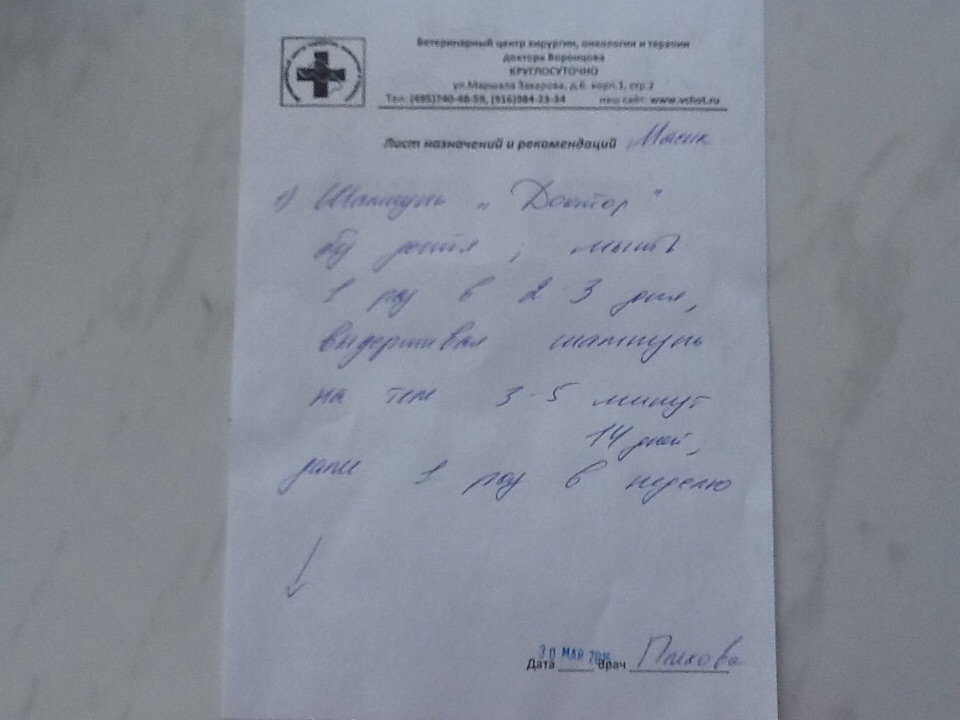 Ветеринарный центр хирургии, онкологии и терапии
доктора Воронцова
КРУГЛОСУТОЧНО
ул.Маршала Захарова, д.6 корп.1, стр.2
Тел: (495)740-48-59, (916)984-23-54 наш сайт: www.vchot.ru
Лист назначений и рекомендаций Масик
1) Шампунь „Доктор"
мыть
1 раз в 2-3 дня,
выдерживая шампунь
на теле 3-5 минут
14 дней,
далее 1 раз в неделю
Дата 30 МАЙ врач